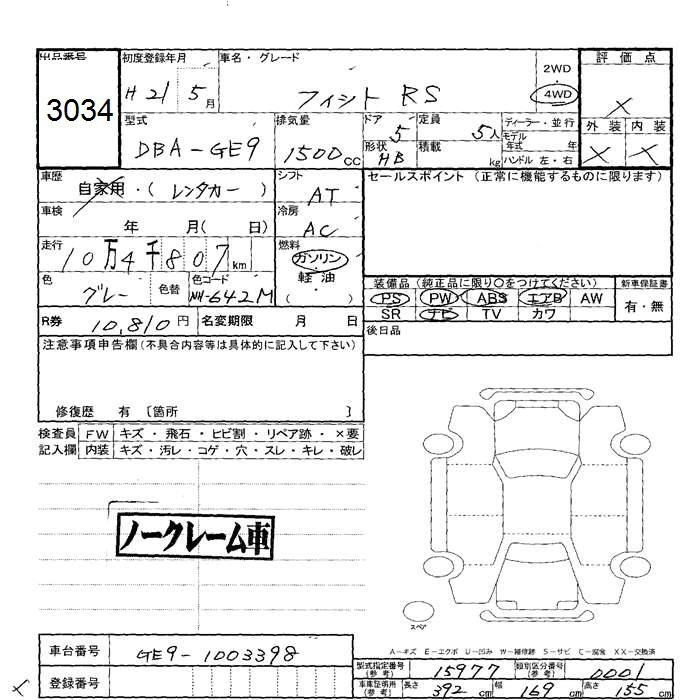 出品番号 初度登録年月 車名・グレード 評価点
3034 H 21 5月 フィット RS 2WD 4WD ×
型式 排気量 ドア 定員 ディーラー・並行 外装 内装
DBA-GE9 1500cc 5 5人 モデル年式 年 × ×
形状 HB 積載 kg ハンドル 左・右
車歴 自家用・(レンタカー) シフト AT セールスポイント (正常に機能するものに限ります)
車検 年 月( 日) 冷房 AC
走行 10万4千807km 燃料 ガソリン 軽油 ( )
色 グレー 色替 色コード NH-642M
装備品(純正品に限り○をつけてください) 新車保証書
PS PW ABS エアB AW 有・無
SR ナビ TV カワ
R券 10,810円 名変期限 月 日
後日品
注意事項申告欄(不具合内容等は具体的に記入して下さい)
修復歴 有 〔箇所 〕
検査員 FW キズ・飛石・ヒビ割・リペア跡・×要
記入欄 内装 キズ・汚レ・コゲ・穴・スレ・キレ・破レ
ノークレーム車
スペア
A-キズ E-エクボ U-凹み W-補修跡 S-サビ C-腐食 XX-交換済
車台番号 GE9-1003398
型式指定番号(参考) 15977 類別区分番号(参考) 0001
登録番号
車庫証明用(参考) 長さ 392cm 幅 169cm 高さ 155cm